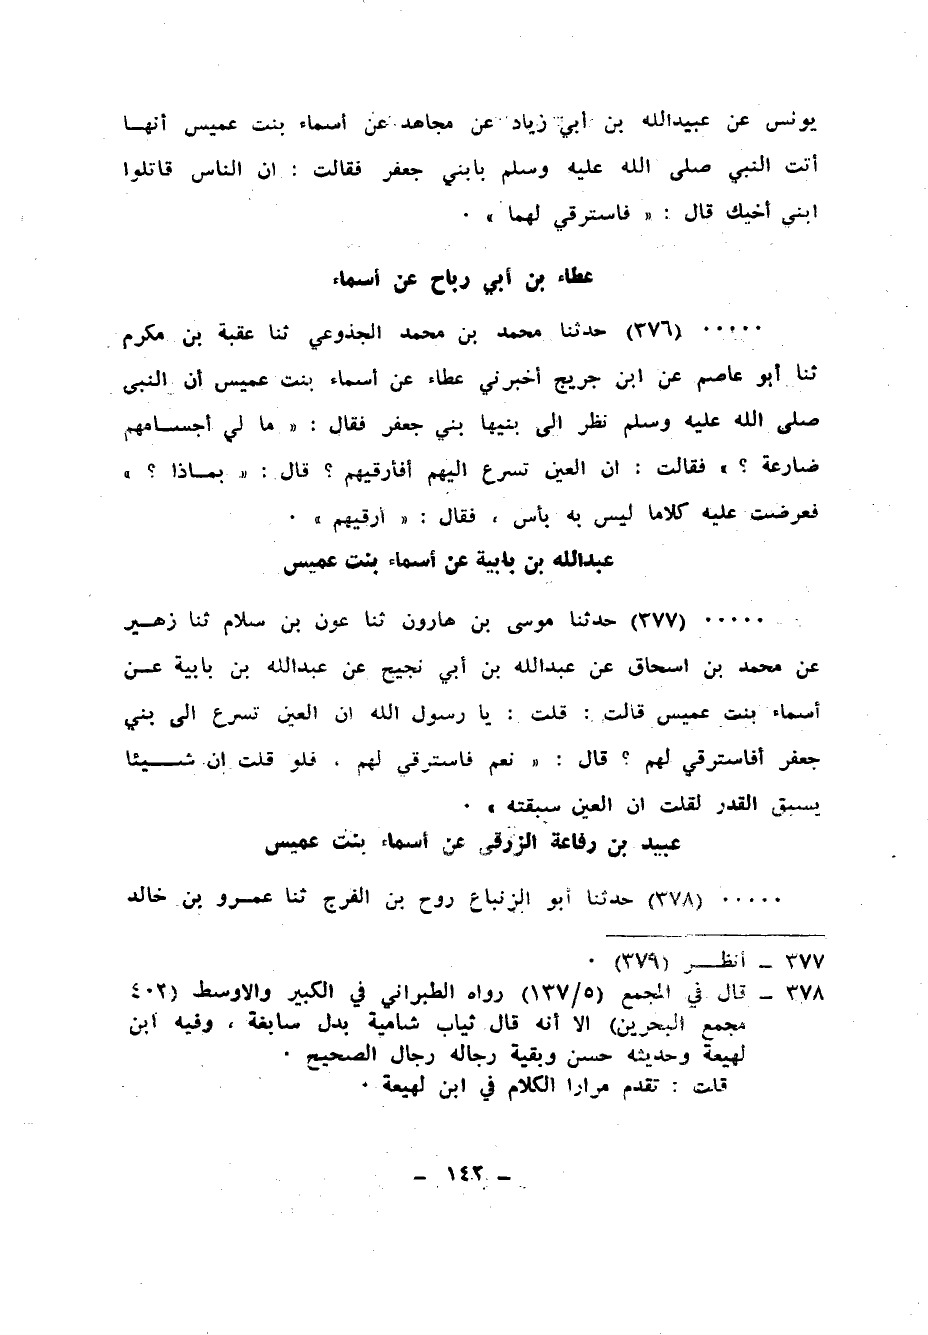 يونس عن عبيدالله بن أبي زياد عن مجاهد عن أسماء بنت عميس أنهـا
أتت النبي صلى الله عليه وسلم بابني جعفر فقالت : ان الناس قاتلوا
ابني أخيك قال : « فاسترقي لهما » ·
عطاء بن أبي رباح عن أسماء
····· (٣٧٦) حدثنا محمد بن محمد الجذوعي ثنا عقبة بن مكرم
ثنا أبو عاصم عن ابن جريج أخبرني عطاء عن أسماء بنت عميس أن النبي
صلى الله عليه وسلم نظر الى بنيها بني جعفر فقال : « ما لي أجسـامهم
ضارعة ؟ » فقالت : ان العين تسرع اليهم أفأرقيهم ؟ قال : « بمـاذا ؟ »
فعرضت عليه كلاما ليس به بأس ، فقال : « أرقيهم » ·
عبدالله بن بابية عن أسماء بنت عميس
····· (٣٧٧) حدثنا موسى بن هارون ثنا عون بن سلام ثنا زهـير
عن محمد بن اسحاق عن عبدالله بن أبي نجيح عن عبدالله بن بابية عـن
أسماء بنت عميس قالت : قلت : يا رسول الله ان العين تسرع الى بني
جعفر أفاسترقي لهم ؟ قال : « نعم فاسترقي لهم ، فلو قلت ان شـيئا
يسبق القدر لقلت ان العين سبقته » ·
عبيد بن رفاعة الزرقي عن أسماء بنت عميس
····· (٣٧٨) حدثنا أبو الزنباع روح بن الفرج ثنا عمـرو بن خالد
٣٧٧ ـ أنظـر (٣٧٩) ·
٣٧٨ ـ قال في المجمع (١٣٧/٥) رواه الطبراني في الكبير والاوسط (٤٠٢
مجمع البحرين) الا أنه قال ثياب شامية بدل سابغة ، وفيه ابن
لهيعة وحديثه حسن وبقية رجاله رجال الصحيح ·
قلت : تقدم مرارا الكلام في ابن لهيعة ·
ـ ١٤٢ ـ